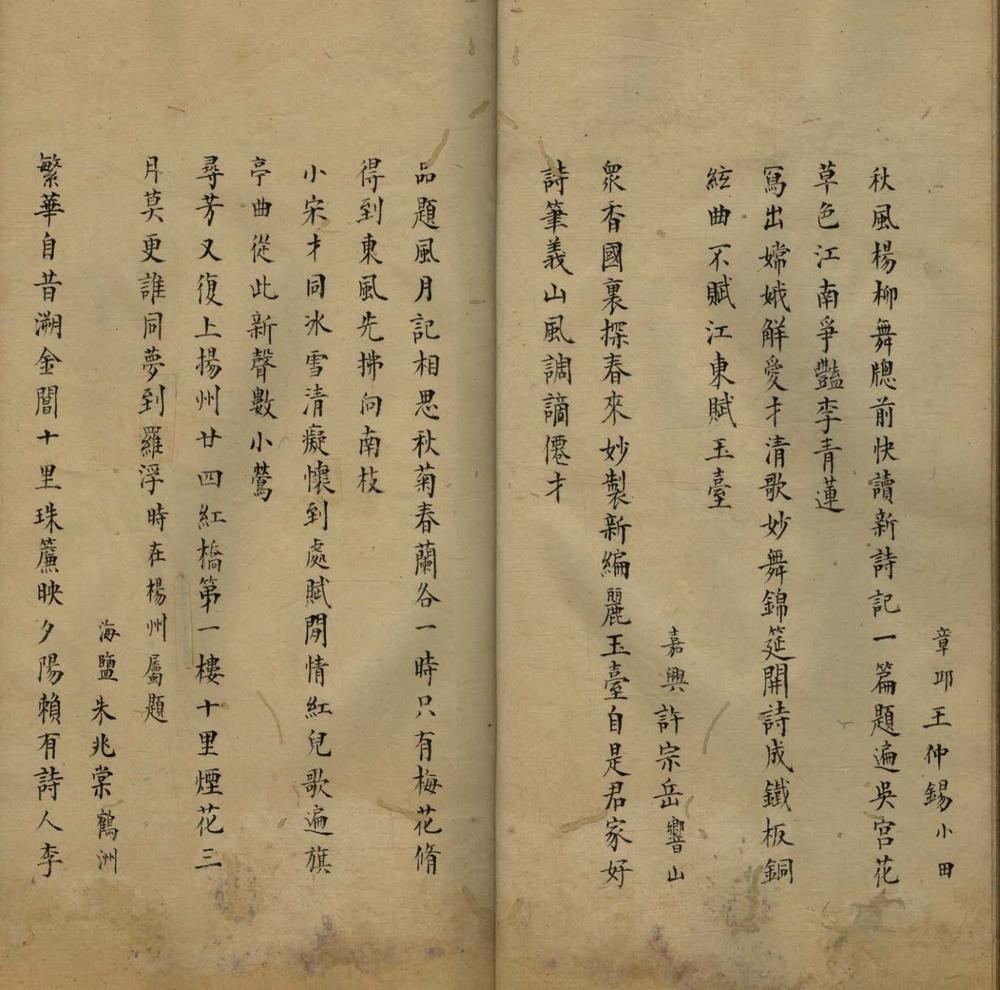 章邱王仲錫小田
秋風楊柳舞牕前快讀新詩記一篇題遍吳宮花
草色江南爭豔李青蓮
寫出嫦娥鮮愛才清歌妙舞錦筵開詩成鐵板銅
絃曲不賦江東賦玉臺
嘉興許宗岳響山
眾香國裏探春來妙製新編麗玉臺自是君家好
詩筆義山風調謫僊才
品題風月記相思秋菊春蘭各一時只有梅花脩
得到東風先拂向南枝
小宋才同冰雪清癡懷到處賦閒情紅兒歌遍旗
亭曲從此新聲數小鶯
尋芳又復上揚州廿四紅橋第一樓十里煙花三
月莫更誰同夢到羅浮時在楊州屬題
海鹽朱兆棠鶴洲
繁華自昔溯金閶十里珠簾映夕陽賴有詩人李